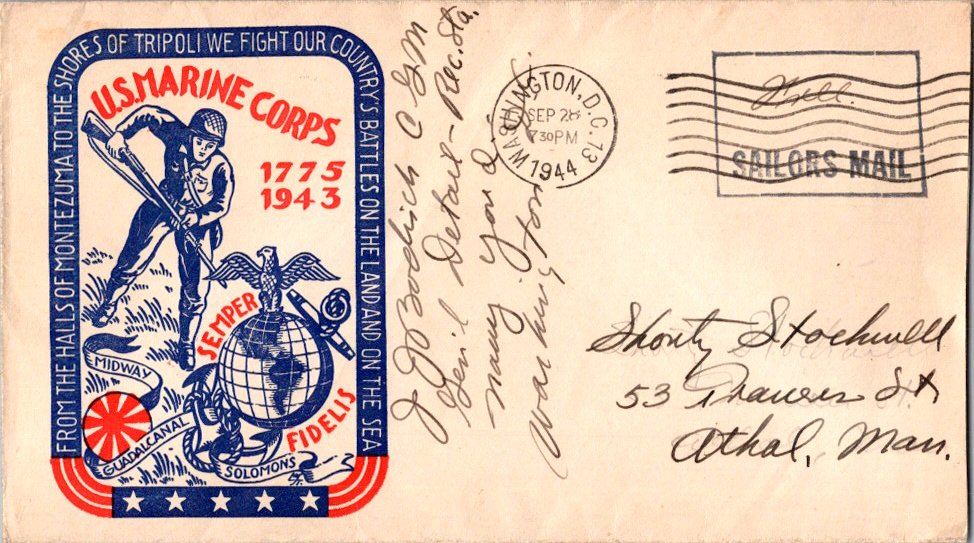 FROM THE HALLS OF MONTEZUMA TO THE SHORES OF TRIPOLI WE FIGHT OUR COUNTRY'S BATTLES ON THE LAND AND ON THE SEA
U.S. MARINE CORPS
1775
1943
SEMPER
FIDELIS
MIDWAY
GUADALCANAL
SOLOMONS
C G M
Detail - Rec. Sta.
navy yard
Washington
WASHINGTON, D.C. 13
SEP 28
730PM
1944
SAILORS MAIL
Shorty Stockwell
53 St
Athol, Mass.